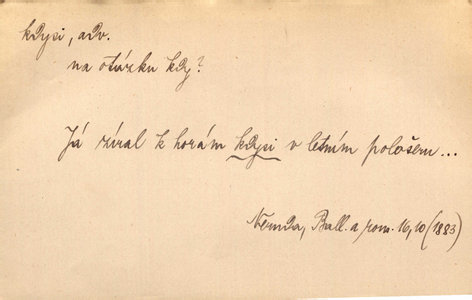 kdysi, adv.
na otázku kdy?
Já zíral k horám kdysi v letním polosem...
Neruda, Ball. a rom. 16,10 (1883)